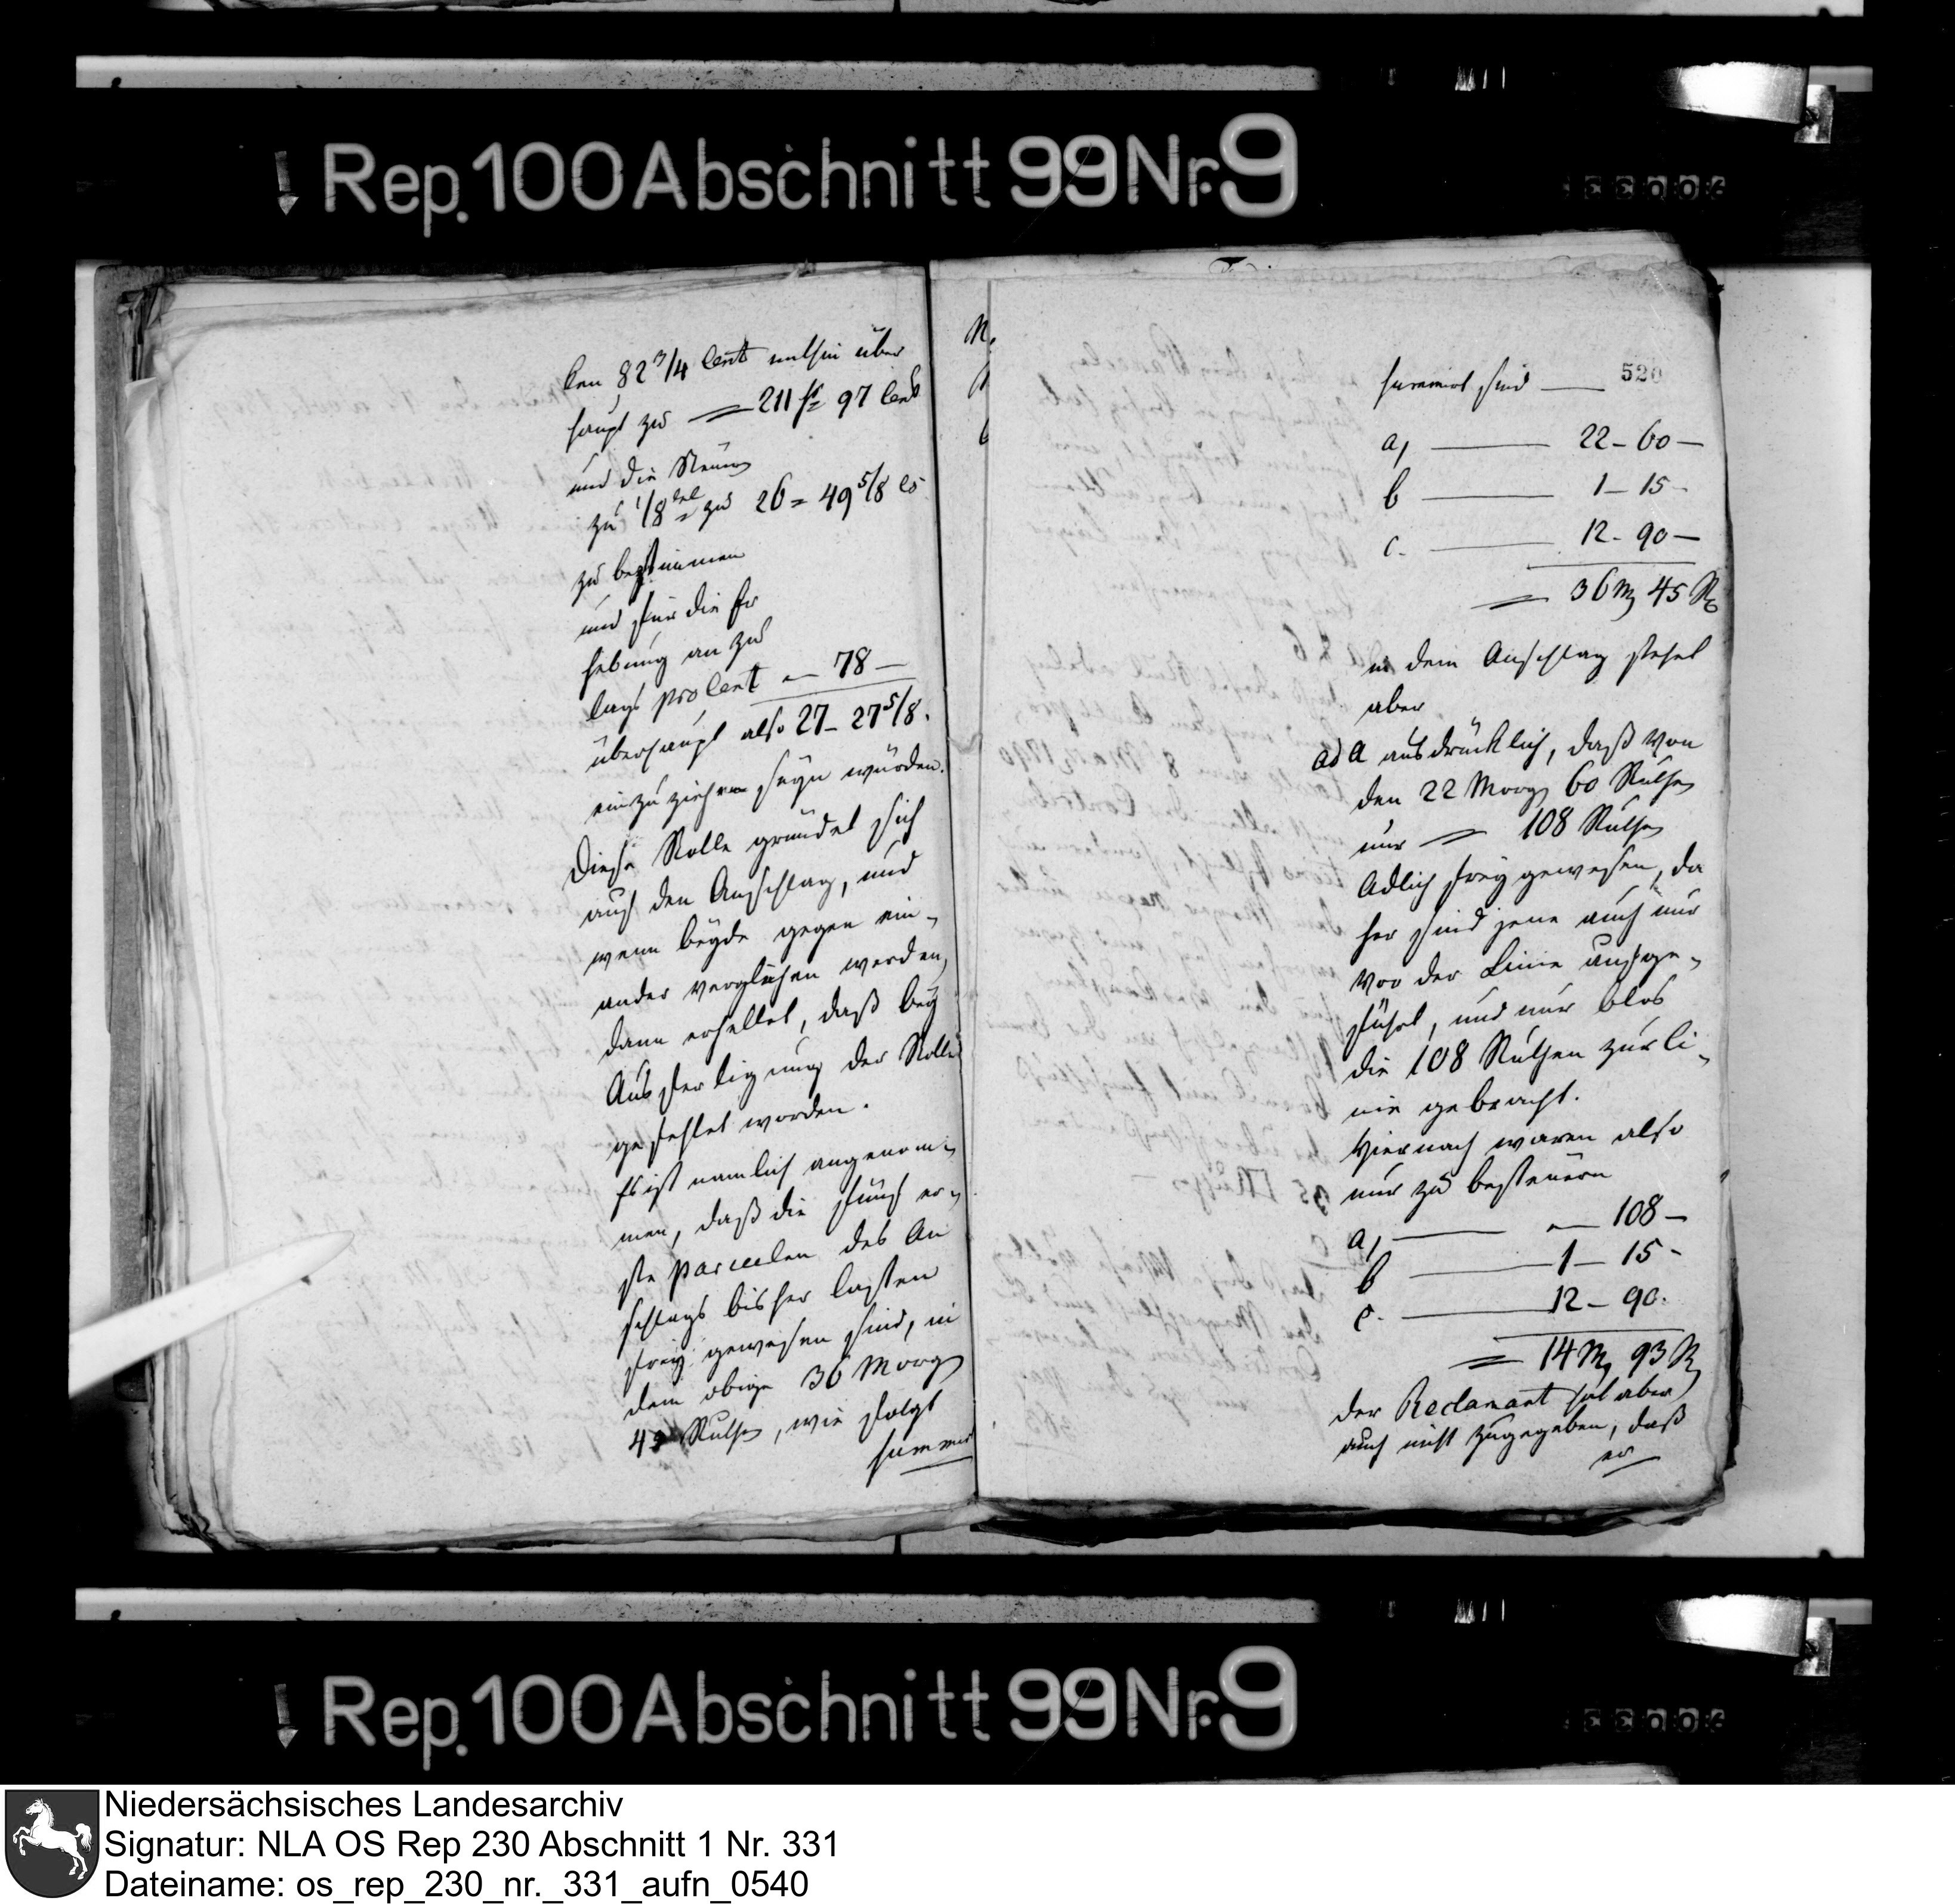 Rep. 100 Abschnitt 99 Nr. 9
len 82 3/4 Cent mithin über
haupt zu = 211 fr 97 Cent
und die Steuer
zu 1/8tel zu 26 = 49 5/8 Cs
zu bestimmen
und für die Er
hebung an zu
lags pro Cent — 78 —
überhaupt also 27 - 27 5/8.
einzuziehen seyn würden.
Diese Rolle gründet sich
auf den Anschlag, und
wenn beyde gegen ein-
ander verglichen werden,
dann erhellet, daß bey
Ausfertigung der Rolle
gefehlet worden.
Es ist namlich angenom-
men, daß die fünf er-
ste Parcelen des An
schlags bisher lasten
frey gewesen sind, in
dem obige 36 Morg
45 Ruthen, wie folgt
summir
520
summirt sind —
a, — 22 - 60 —
b — 1 - 15 -
c. — 12 - 90 —
= 36 M 45 R
in dem Anschlag stehet
aber
ad a ausdrücklich, daß von
den 22 Morg 60 Ruthen
nur = 108 Ruthen
Adlich frey gewesen, da
her sind jene auch nur
vor der Linie aufge-
führt, und nur blos
die 108 Ruthen zur Li-
nie gebracht.
Hiernach waren also
nur zu besteuern
a, — — 108 —
b — 1 - 15 -
c. — 12 - 90.
= 14 M 93 R
der Reclamant hat aber
auch nicht zugegeben, daß
er
Rep. 100 Abschnitt 99 Nr. 9
Niedersächsisches Landesarchiv
Signatur: NLA OS Rep 230 Abschnitt 1 Nr. 331
Dateiname: os_rep_230_nr._331_aufn_0540